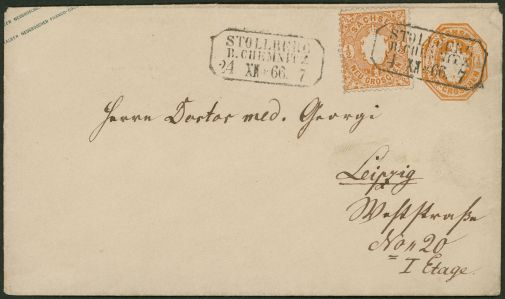 STOLLBERG
B. CHEMNITZ
24 XII 66. 7
SACHSEN
NEUGROSCH
STOLLBERG
B. CHEMNITZ
XII 66. 7
Herrn Doctor med. Georgi
Leipzig
Weststraße
Nо 20
I Etage.